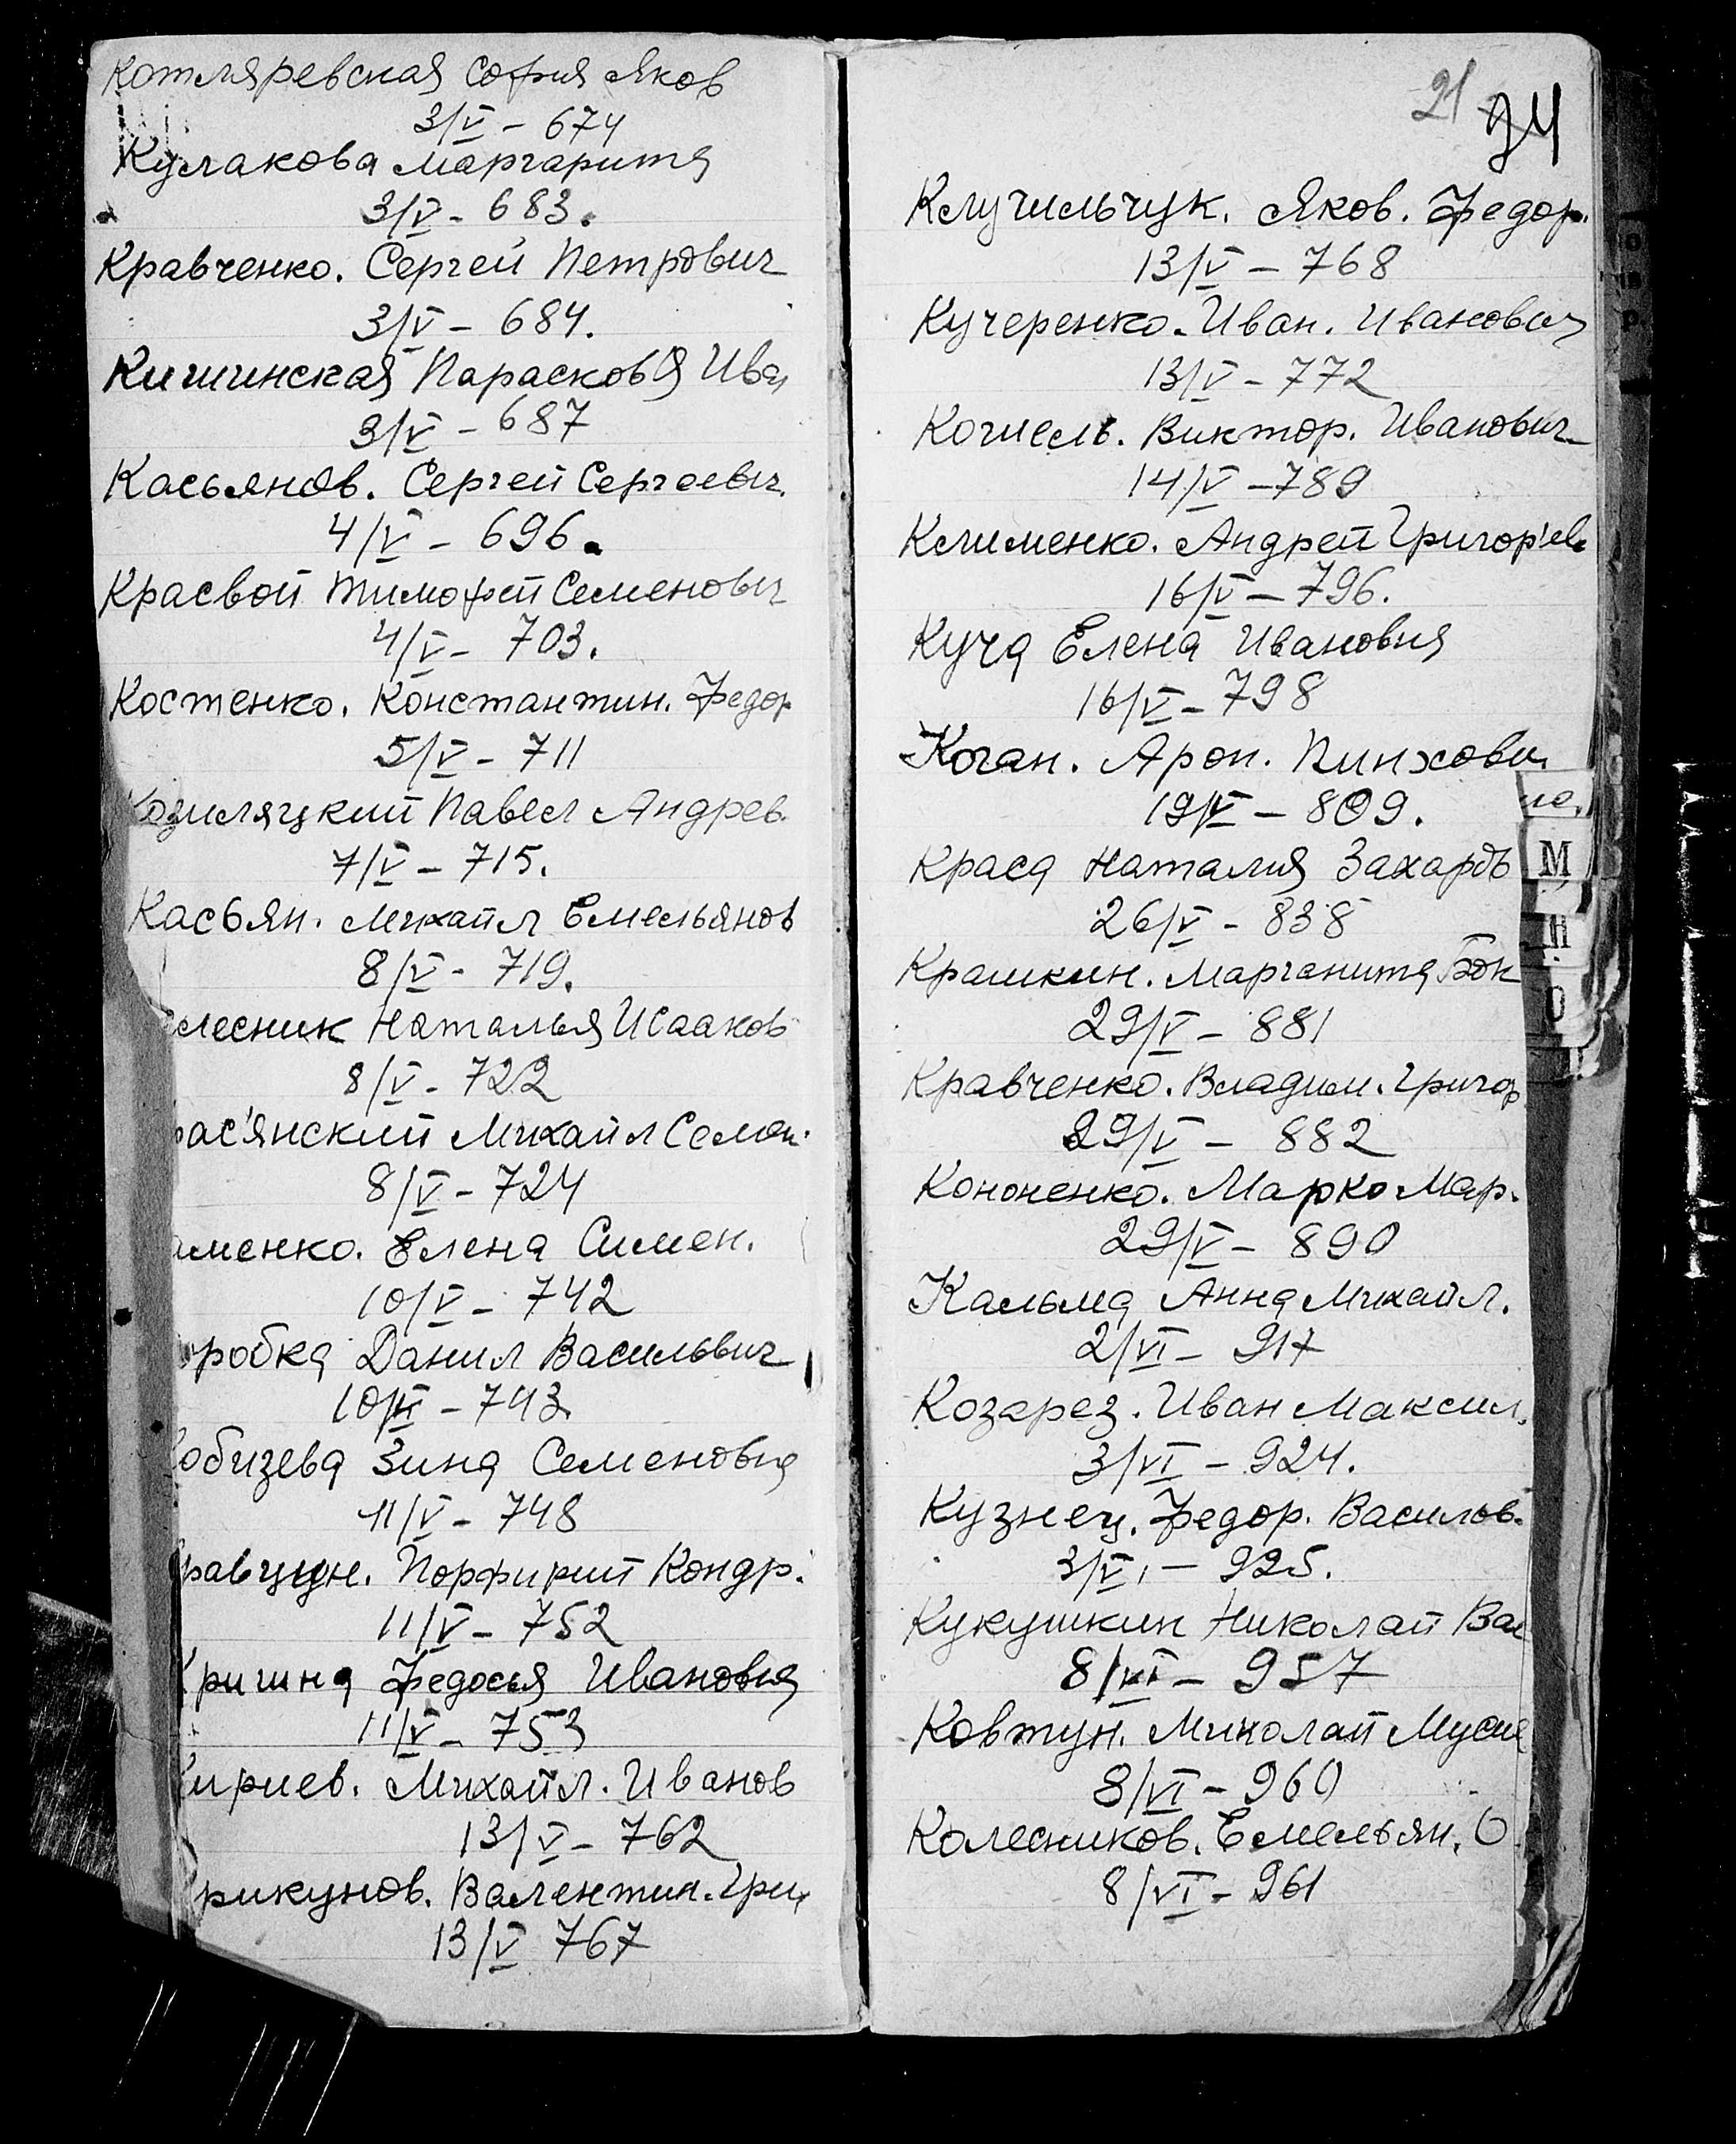 Котляревская София Яков
3/V - 674
Кулакова Маргарита
3/V - 683.
Кравченко. Сергей Петрович
3/V - 684.
Кишинская Парасковя Иван
3/V - 687
Касьянов. Сергей Сергеевич.
4/V - 696.
Красвой Тимофей Семенович
4/V - 703.
Костенко. Константин. Федор
5/V - 711
Козиляцкий Павел Андрев.
7/V - 715.
Касьян. Михайл Емельянов
8/V - 719.
лесник Наталья Исааков
8/V - 722
рас'янский Михайл Семен.
8/V - 724
именко. Елена Симен.
10/V - 742
робка Данил Васильвич
10/V - 743.
обизева Зина Семеновна
11/V - 748
равцун. Порфирий Кондр.
11/V - 752
ришина Федосья Ивановна
11/V - 753
ириев. Михайл. Иванов
13/V - 762
рикунов. Валентин. Григ
13/V 767
21 94
Клучильчук. Яков. Федор.
13/V - 768
Кучеренко. Иван. Иванович
13/V - 772
Когиель. Виктор. Иванович
14/V - 789
Клименко. Андрей Григор'ев.
16/V - 796.
Куча Елена Ивановна
16/V - 798
Коган. Арон. Пинхович
19/V - 809.
Краса Наталия Захаровь
26/V - 838
Крашкин. Марганита Бон
29/V - 881
Кравченко. Владим. Григор
29/V - 882
Кононенко. Марко Мар.
29/V - 890
Кальма Анна Михайл.
2/VI - 917
Козарез. Иван Максим.
3/VI - 924.
Кузнец. Федор. Васильв.
3/VI - 925.
Кукушкин Николай Вас
8/VI - 957
Ковтун. Миколай Мусие
8/VI - 960
Колесников. Емельян. О
8/VI - 961
М
Н
О